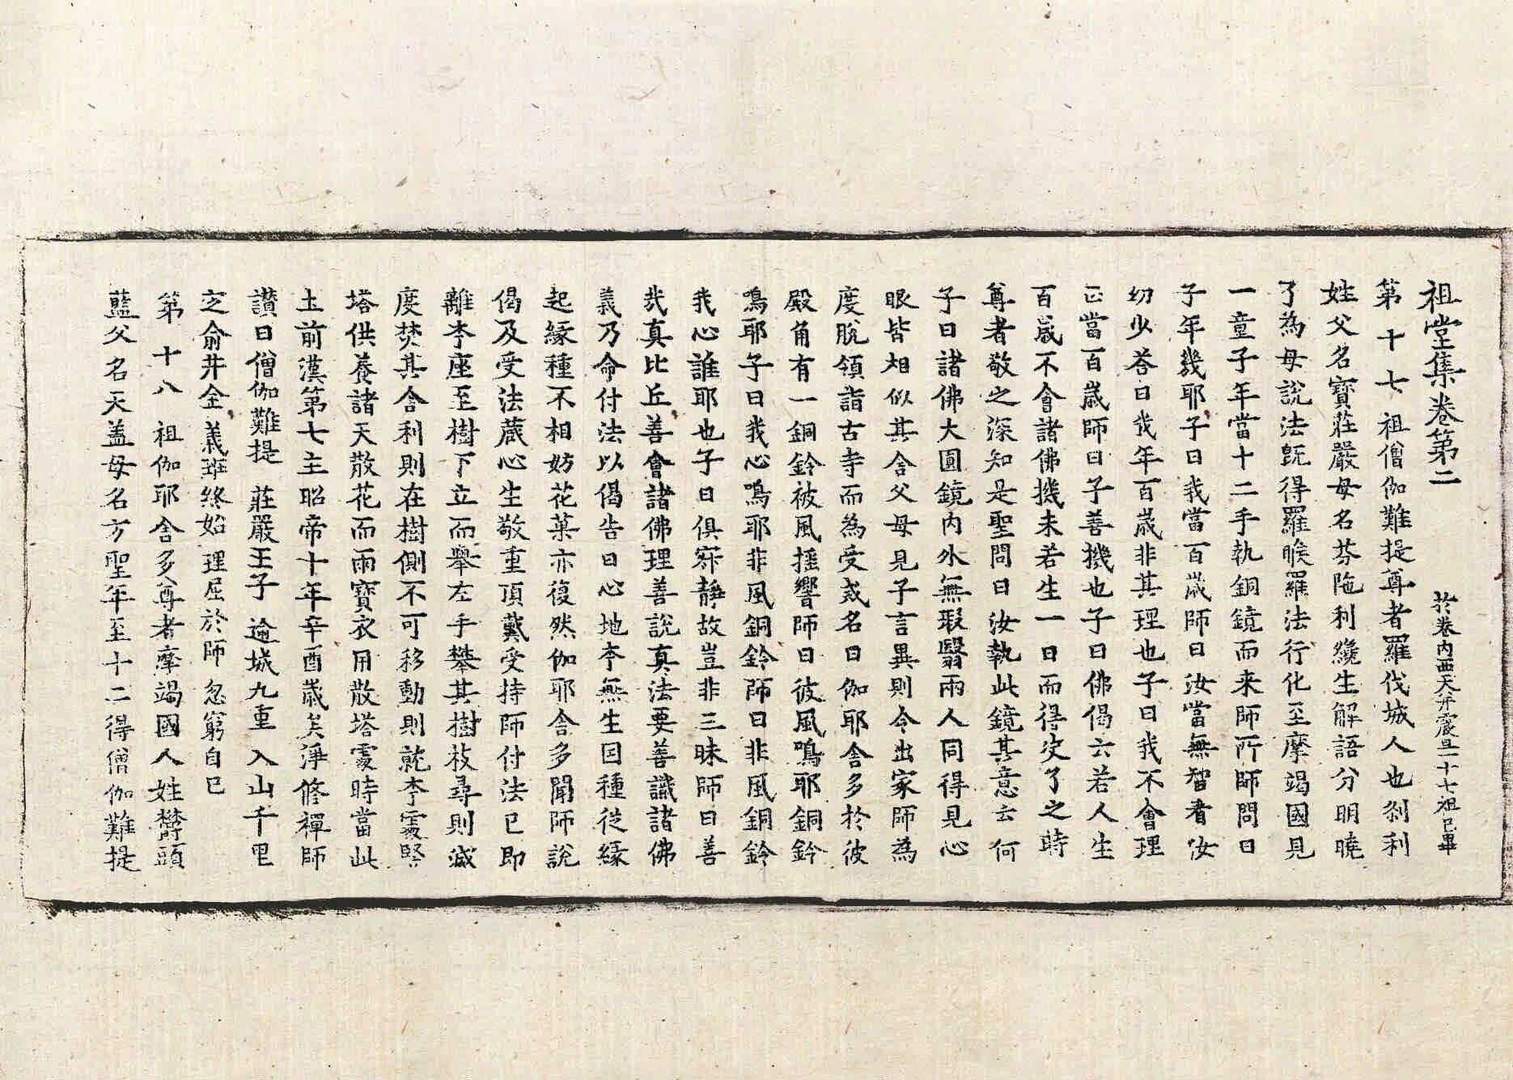 祖堂集卷第二　於卷內西天并震旦二十七祖已畢
第十七祖僧伽難提尊者羅伐城人也刹利
姓父名寶莊嚴母名芬陁利纔生解語分明曉
了為母說法旣得羅睺羅法行化至摩竭國見
一童子年當十二手執銅鏡而来師所師問曰
子年幾耶子曰我當百歲師曰汝當無智者汝
幼少荅曰我年百歲非其理也子曰我不會理
正當百歲師曰子善機也子曰佛偈云若人生
百歲不會諸佛機未若生一日而得決了之時
尊者敬之深知是聖問曰汝執此鏡其意云何
子曰諸佛大圓鏡內外無瑕翳兩人同得見心
眼皆相似其舍父母見子言異則令出家師為
度脫領詣古寺而為受戒名曰伽耶舍多於彼
殿角有一銅鈴被風揺響師曰彼風鳴耶銅鈴
鳴耶子曰我心鳴耶非風銅鈴師曰非風銅鈴
我心誰耶也子曰俱寂靜故豈非三昧師曰善
哉真比丘善會諸佛理善說真法要善識諸佛
義乃命付法以偈告曰心地夲無生因種從緣
起緣種不相妨花菓亦復然伽耶舍多聞師說
偈及受法藏心生敬重頂戴受持師付法已即
離夲座至樹下立而舉左手攀其樹枝尋則滅
度焚其舍利則在樹側不可移動則就夲處堅
塔供養諸天散花而雨寶衣用散塔處時當此
土前漢第七主昭帝十年辛酉歲矣淨修禪師
讚曰僧伽難提　莊嚴王子　逾城九重　入山千里
㝎俞井金　義班終始　理屈於師　忽窮自已
第十八祖伽耶舍多尊者摩竭國人姓欝頭
藍父名天盖母名方聖年至十二得僧伽難提